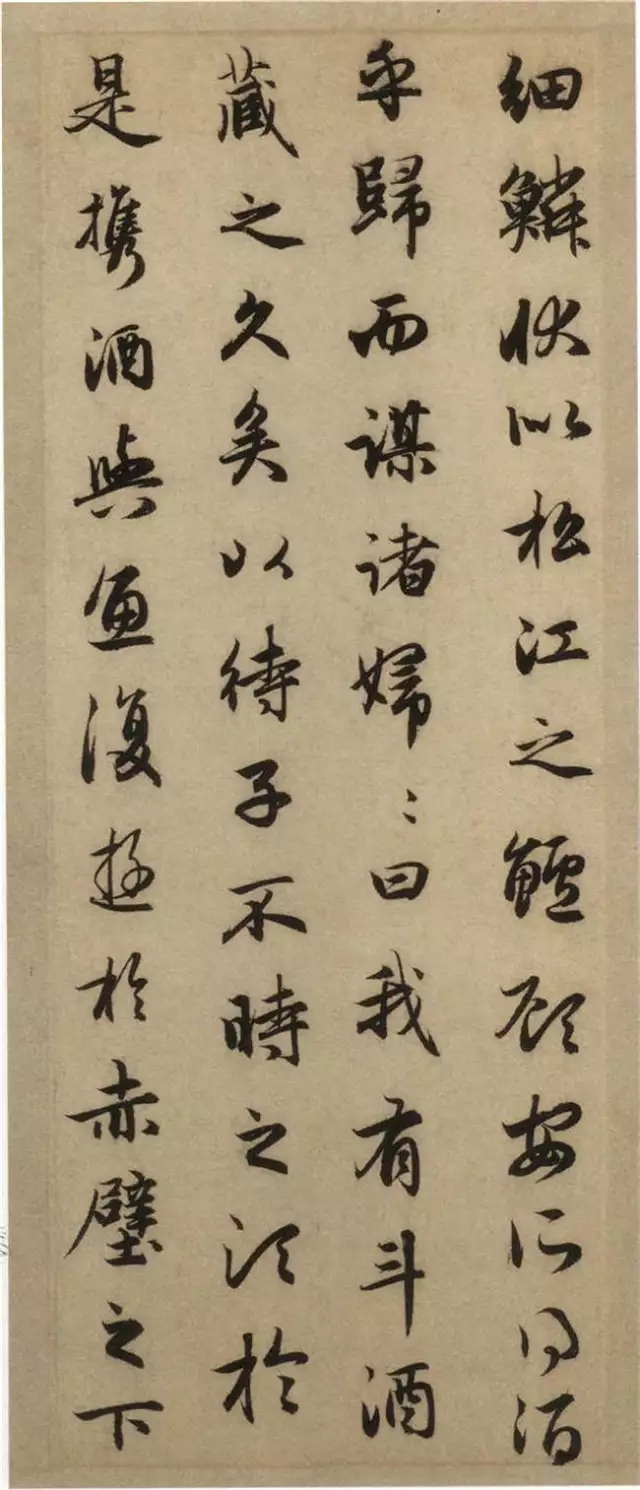 細鱗状似松江之鱸顧安所得酒
乎歸而謀諸婦〻曰我有斗酒
藏之久矣以待子不時之須於
是携酒與魚復遊於赤壁之下